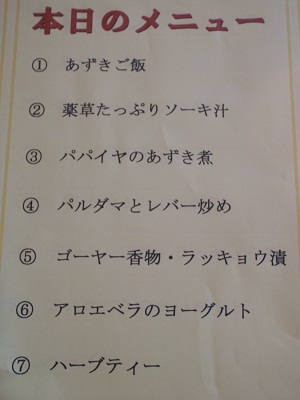 本日のメニュー
① あずきご飯
② 薬草たっぷりソーキ汁
③ パパイヤのあずき煮
④ パルダマとレバー炒め
⑤ ゴーヤー香物・ラッキョウ漬
⑥ アロエベラのヨーグルト
⑦ ハーブティー